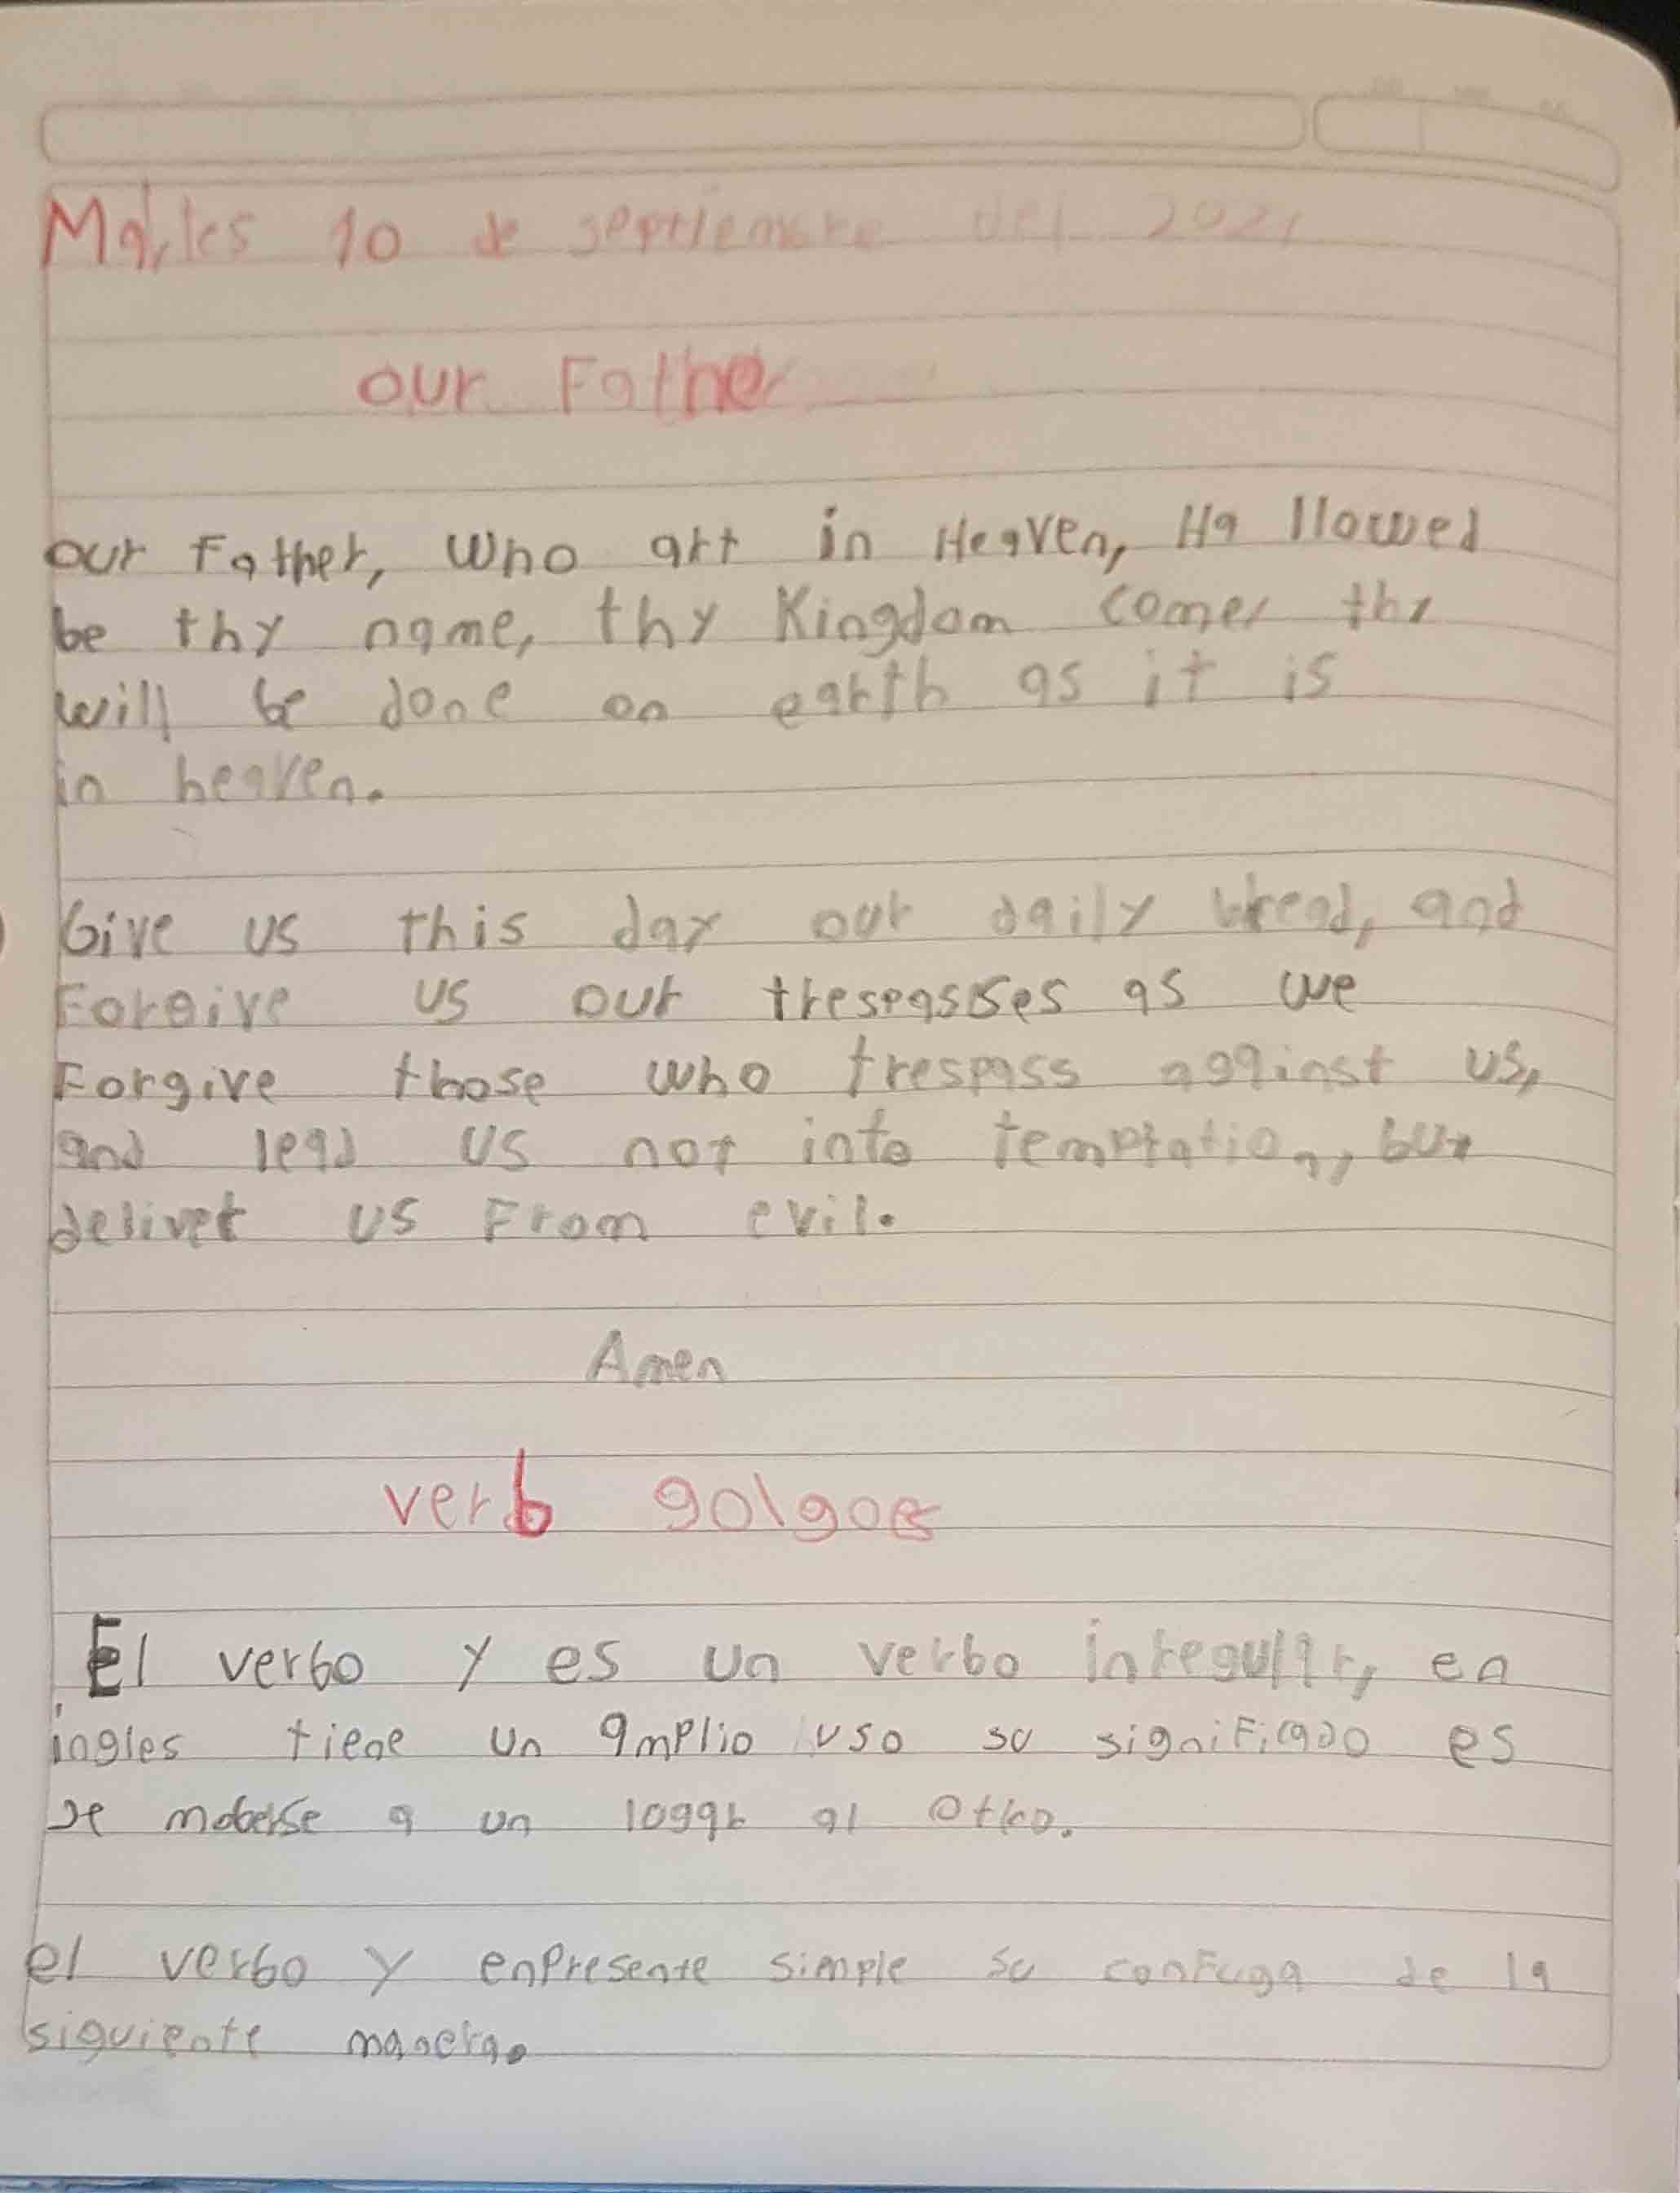 Martes 10 de septiembre del 2021
our Father
our Father, who art in Heaven, Ha llowed
be thy name, thy Kingdom come, thy
will be done on earth as it is
in heaven.
Give us this day our daily bread, and
Forgive us our trespasses as we
Forgive those who trespass against us,
and lead us not into temptation, but
deliver us From evil.
Amen
verb go|goes
El verbo y es un verbo irregular, en
ingles tiene un amplio uso su significado es
de moberse a un logar al otro.
el verbo y enpresente simple su confuga de la
siguiente manera.